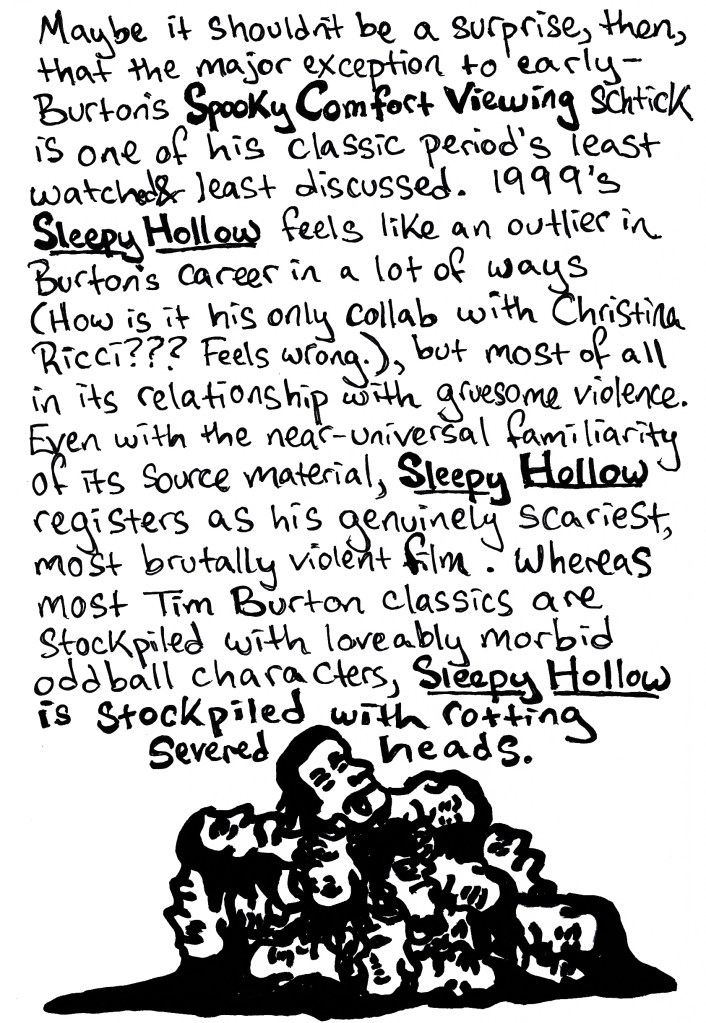 Maybe it shouldn't be a surprise, then,
that the major exception to early-
Burton's Spooky Comfort Viewing schtick
is one of his classic period's least
watched & least discussed. 1999's
Sleepy Hollow feels like an outlier in
Burton's career in a lot of ways
(How is it his only collab with Christina
Ricci??? Feels wrong.), but most of all
in its relationship with gruesome violence.
Even with the near-universal familiarity
of its source material, Sleepy Hollow
registers as his genuinely scariest,
most brutally violent film. Whereas
most Tim Burton classics are
stockpiled with loveably morbid
oddball characters, Sleepy Hollow
is stockpiled with rotting
severed heads.